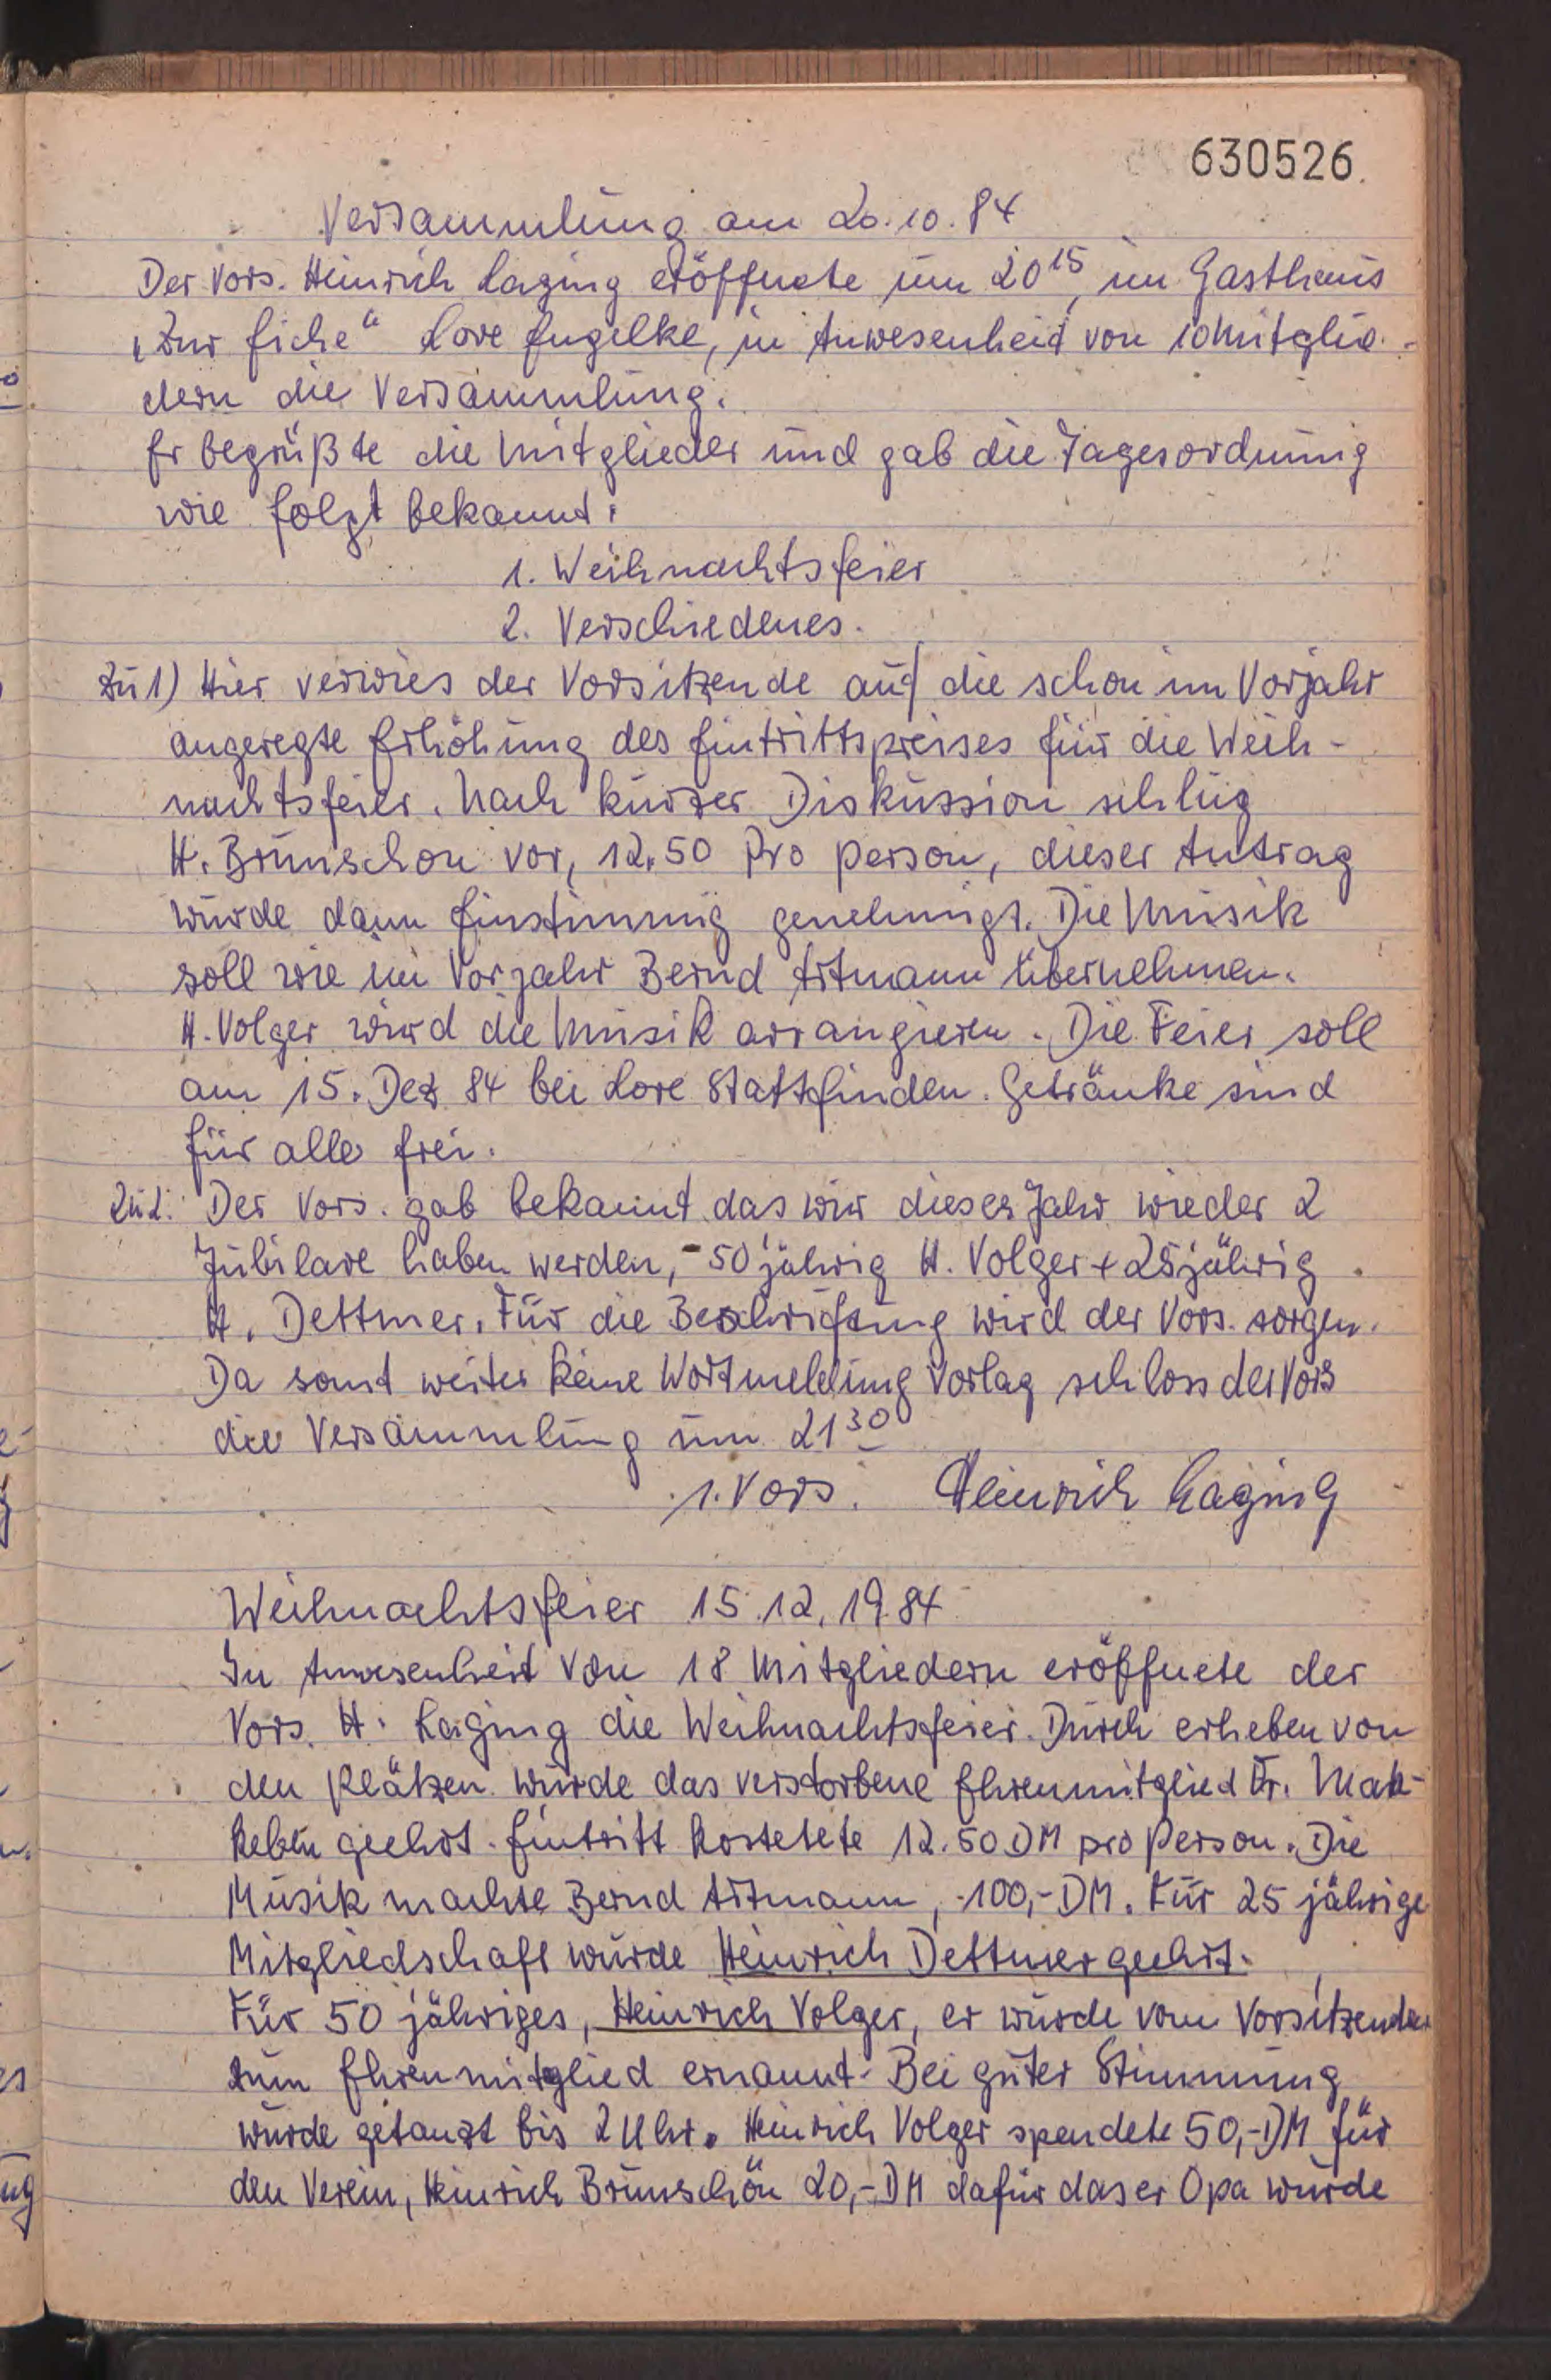 630526
Versammlung am 20.10.84
Der Vors. Heinrich Laging eröffnete um 20¹⁵, im Gasthaus
"Zur Eiche" Lore Engelke, in Anwesenheit von 10 Mitglie-
dern die Versammlung.
Er begrüßte die Mitglieder und gab die Tagesordnung
wie folgt bekannt:
1. Weihnachtsfeier
2. Verschiedenes.
Zu 1) Hier verwies der Vorsitzende auf die schon im Vorjahr
angeregte Erhöhung des Eintrittspreises für die Weih-
nachtsfeier. Nach kurzer Diskussion schlug
H. Brunschön vor, 12.50 Pro Person, dieser Antrag
wurde dann Einstimmig genehmigt. Die Musik
soll wie im Vorjahr Bernd Artmann übernehmen.
H. Volger wird die Musik arrangieren. Die Feier soll
am 15. Dez 84 bei Lore Stattfinden. Getränke sind
für alle frei.
Zu 2. Der Vors. gab bekannt das wir dieses Jahr wieder 2
Jubilare haben werden, - 50 jährig H. Volger + 25 jährig
H. Dettmer. Für die Beschriftung wird der Vors. sorgen.
Da somit weiter keine Wortmeldung vorlag schloss der Vors
die Versammlung um 21³⁰
1. Vors. Heinrich Laging
Weihnachtsfeier 15.12.1984
In Anwesenheit von 18 Mitgliedern eröffnete der
Vors. H. Laging die Weihnachtsfeier. Durch erheben von
den Plätzen wurde das verstorbene Ehrenmitglied Fr. Mak-
keben geehrt. Eintritt kostetete 12.50 DM pro Person. Die
Musik machte Bernd Artmann, -100,- DM. Für 25 jährige
Mitgliedschaft wurde Heinrich Dettmer geehrt.
Für 50 jähriges, Heinrich Volger, er wurde vom Vorsitzenden
zum Ehrenmitglied ernannt. Bei guter Stimmung
wurde getanzt bis 2 Uhr. Heinrich Volger spendete 50,-DM für
den Verein, Heinrich Brunschön 20,-DM dafür das er Opa wurde